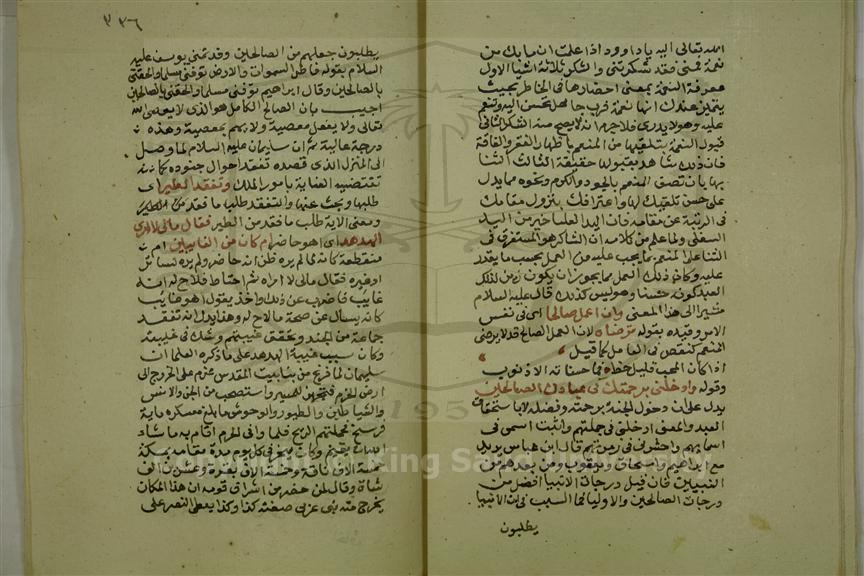 الله تعالى اليه يا داوود اذا علمت ان ما بك من
نعمة فمنى فقد شكرتنى والشكر ثلاثة اشيا الاول
معرفة النعمة بمعنى احضارها فى الخاطر بحيث
يتميز عندك انها نعمة فرب جاهل يحسن اليه وتنعم
عليه وهو لا يدرى فلا جرم انه لا يصح منه الشكر الثانى
قبول النعمة بتلقيها من المنعم باظهار الفقر والفاقة
فان ذلك شاهد بقبولها حقيقة الثالث الثنا
بها بان تصف المنعم بالجود والكرم ونحوه مما يدل
على حسن تلقيك لها واعترافك بنزول مقامك
فى الرتبة عن مقامه فان اليد العليا خير من اليد
السفلى ولما علم من كلامه ان الشاكر هو المستغرق فى
الثنا على المنعم بما يجب عليه من العمل بحسب ما يقدر
عليه وكان ذلك العمل مما يجوز ان يكون زمن لذلك
العبد كونه حسنا وهو ليس كذلك قال عليه السلام
مشيرا الى هذا المعنى وان اعمل صالحا اى فى نفس
الامر وقيده بقوله ترضاه لان العمل الصالح قد لا يرضى
المنعم كنقص فى العامل كما قيل
اذا كان المحب قليل حظ فما حسناته الا ذنوب
وقوله وادخلنى برحمتك فى عبادك الصالحين
يدل على ان دخول الجنة برحمته وفضله لا باستحقاق
العبد والمعنى ادخلنى فى جملتهم واثبت اسمى فى
اسمايهم واحشرنى فى زمرتهم قال ابن عباس يريد
مع ابراهيم واسحاق ويعقوب ومن بعدهم من
النبيين فان قيل درجات الانبيا افضل من
درجات الصالحين والاوليا فما السبب فى ان الانبيا
يطلبون
٣٣٦
يطلبون جعلهم من الصالحين وقد تمنى يوسف عليه
السلام بقوله فاطر السموات والارض توفنى مسلما والحقنى
بالصالحين وقال ابراهيم توفنى مسلما والحقنى بالصالحين
اجيب بان الصالح الكامل هو الذى لا يعصى الله
تعالى ولا يفعل معصية ولا يهم بمعصية وهذه
درجة عالية ثم ان سليمان عليه السلام لما وصل
الى المنزل الذى قصده تفقد احوال جنوده كما
تقتضيه العناية بامور الملك وتفقد الطير اى
طلبها وبحث عنها والتفقد طلب ما فقد
ومعنى الاية طلب ما فقد من الطير فقال مالى لا ارى
الهدهد اى اهو حاضر ام كان من الغايبين ام
منقطعة كانه لما لم يره ظن انه حاضر ولم يره لساتر
او غيره فقال مالى لا اراه ثم احتاط فلاح له انه
غايب فاضرب عن ذلك واخذ يقول اهو غايب
كانه يسال عن صحة ما لاح له وهذا يدل انه تفقد
جماعة من الجند وتحقق غيبتهم وشك فى غيبته
وكان سبب غيبة الهدهد على ما ذكره العلما ان
سليمان لما فرغ من بنا بيت المقدس عزم على الخروج الى
ارض الحرم فتجهز للمسير واستصحب من الجن والانس
والشياطين والطيور والوحوش ما بلغ معسكره ماية
فرسخ فحملتهم الريح فلما وافى الحرم اقام به ما شاء
الله ان يقيم وكان ينحر فى كل يوم مدة مقامه بمكة
خمسة الاف ناقة وخمسة الاف بقرة وعشرين الف
شاة وقال لمن حضره من اشراف قومه ان هذا المكان
يخرج منه نبى عربى صفته كذا وكذا يعطى النصر على